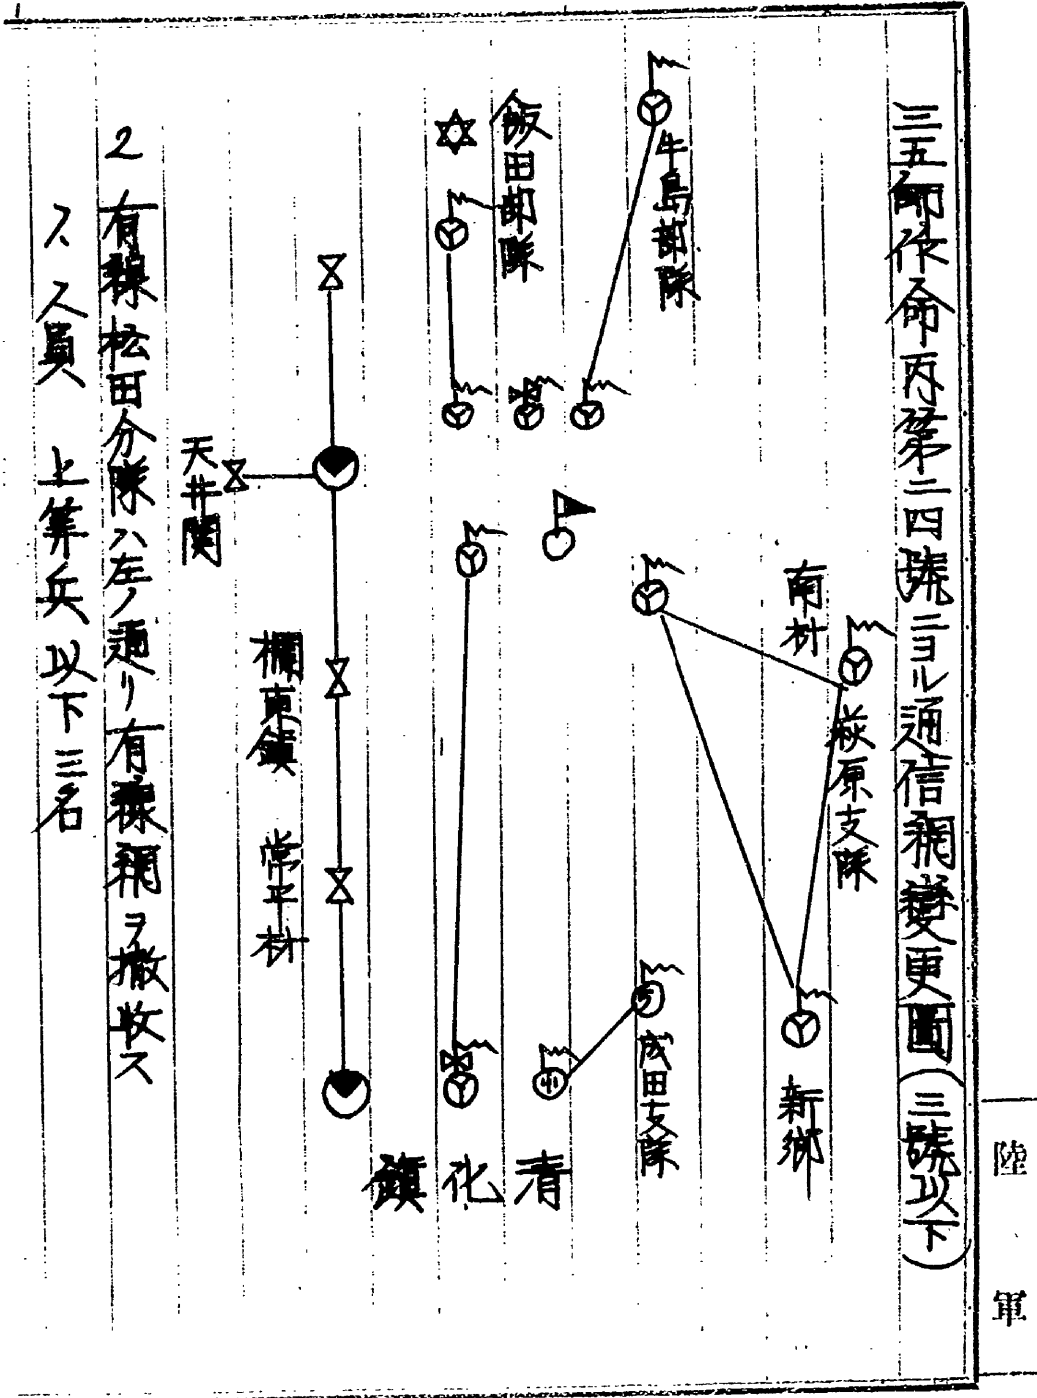 三五師作命丙第二四號ニヨル通信網變更圖(三號以下)
牛島部隊
飯田部隊
南村
萩原支隊
新鄉
成田支隊
清化鎮
天井関
欄車鎮
常平村
2 有線松田分隊ハ左ノ通リ有線網ヲ撤收ス
人員 上等兵以下三名
陸軍